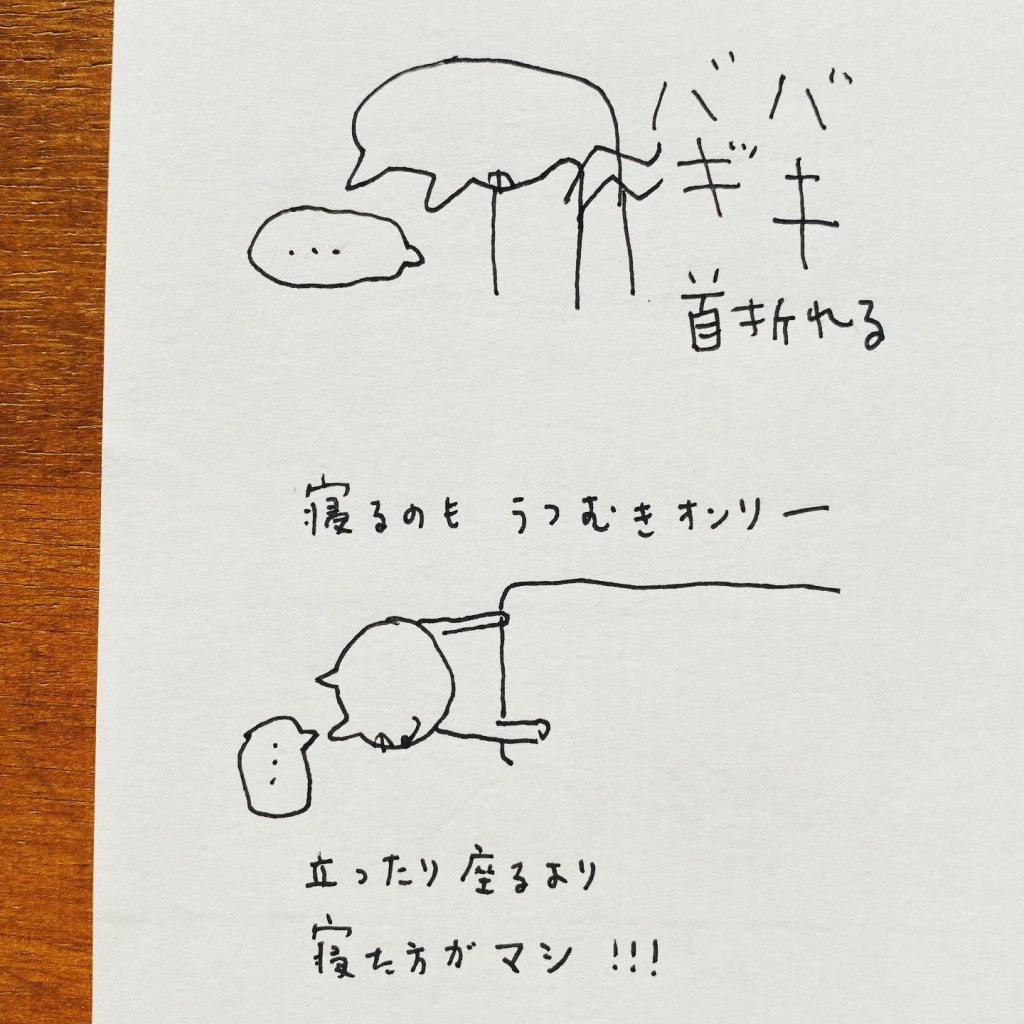 バキ
バギ
首折れる
...
寝るのも うつむきオンリー
...
立ったり座るより
寝た方がマシ!!!